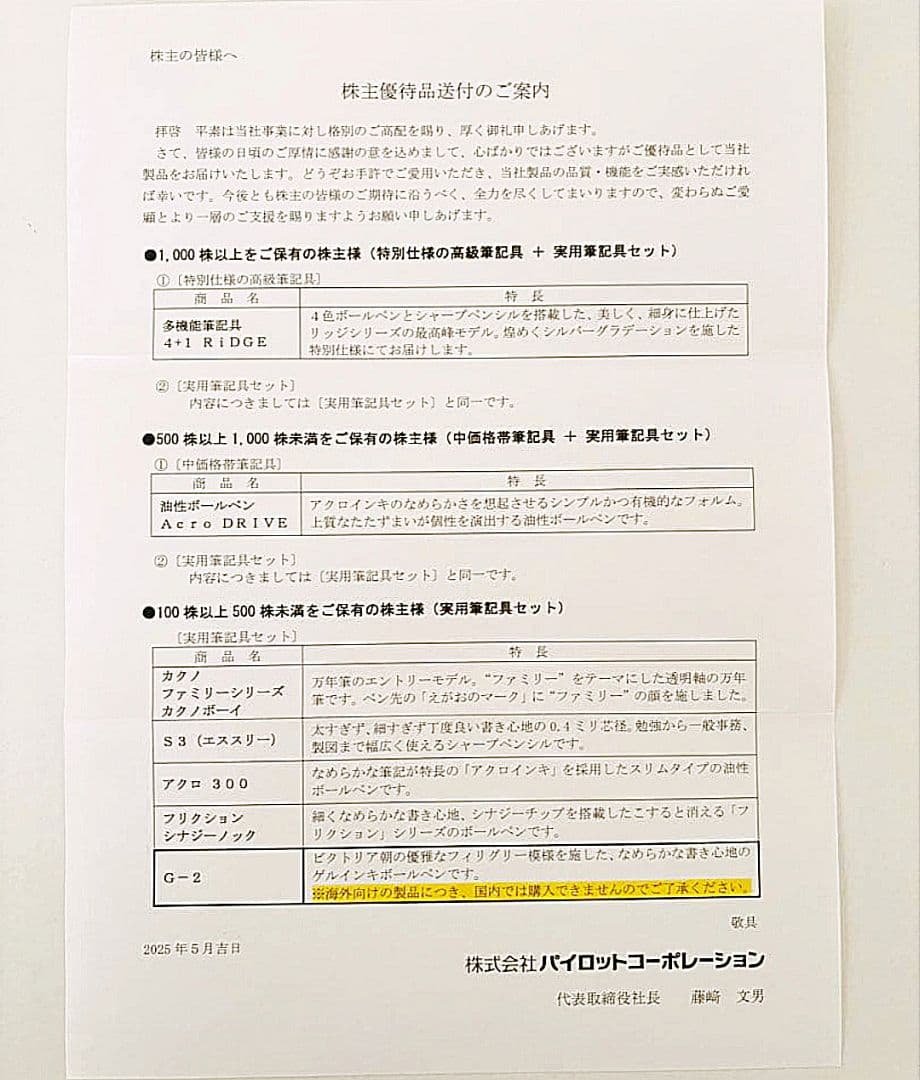 株主の皆様へ
株主優待品送付のご案内
拝啓　平素は当社事業に対し格別のご高配を賜り、厚く御礼申しあげます。
さて、皆様の日頃のご厚情に感謝の意を込めまして、心ばかりではございますがご優待品として当社
製品をお届けいたします。どうぞお手許でご愛用いただき、当社製品の品質・機能をご実感いただけれ
ば幸いです。今後とも株主の皆様のご期待に沿うべく、全力を尽くしてまいりますので、変わらぬご愛
顧とより一層のご支援を賜りますようお願い申しあげます。
●1,000 株以上をご保有の株主様（特別仕様の高級筆記具 ＋ 実用筆記具セット）
①〔特別仕様の高級筆記具〕
商 品 名　特 長
多機能筆記具
4+1 RiDGE
４色ボールペンとシャープペンシルを搭載した、美しく、細身に仕上げた
リッジシリーズの最高峰モデル。煌めくシルバーグラデーションを施した
特別仕様にてお届けします。
②〔実用筆記具セット〕
内容につきましては〔実用筆記具セット〕と同一です。
●500 株以上 1,000 株未満をご保有の株主様（中価格帯筆記具 ＋ 実用筆記具セット）
①〔中価格帯筆記具〕
商 品 名　特 長
油性ボールペン
Ａｃｒｏ ＤＲＩＶＥ
アクロインキのなめらかさを想起させるシンプルかつ有機的なフォルム。
上質なたたずまいが個性を演出する油性ボールペンです。
②〔実用筆記具セット〕
内容につきましては〔実用筆記具セット〕と同一です。
●100 株以上 500 株未満をご保有の株主様（実用筆記具セット）
〔実用筆記具セット〕
商 品 名　特 長
カクノ
ファミリーシリーズ
カクノボーイ
万年筆のエントリーモデル。“ファミリー”をテーマにした透明軸の万年
筆です。ペン先の「えがおのマーク」に“ファミリー”の顔を施しました。
Ｓ３（エススリー）
太すぎず、細すぎず丁度良い書き心地の 0.4 ミリ芯径。勉強から一般事務、
製図まで幅広く使えるシャープペンシルです。
アクロ ３００
なめらかな筆記が特長の「アクロインキ」を採用したスリムタイプの油性
ボールペンです。
フリクション
シナジーノック
細くなめらかな書き心地、シナジーチップを搭載したこすると消える「フ
リクション」シリーズのボールペンです。
Ｇ－２
ビクトリア朝の優雅なフィリグリー模様を施した、なめらかな書き心地の
ゲルインキボールペンです。
※海外向けの製品につき、国内では購入できませんのでご了承ください。
敬具
2025 年５月吉日
株式会社パイロットコーポレーション
代表取締役社長　藤﨑　文男